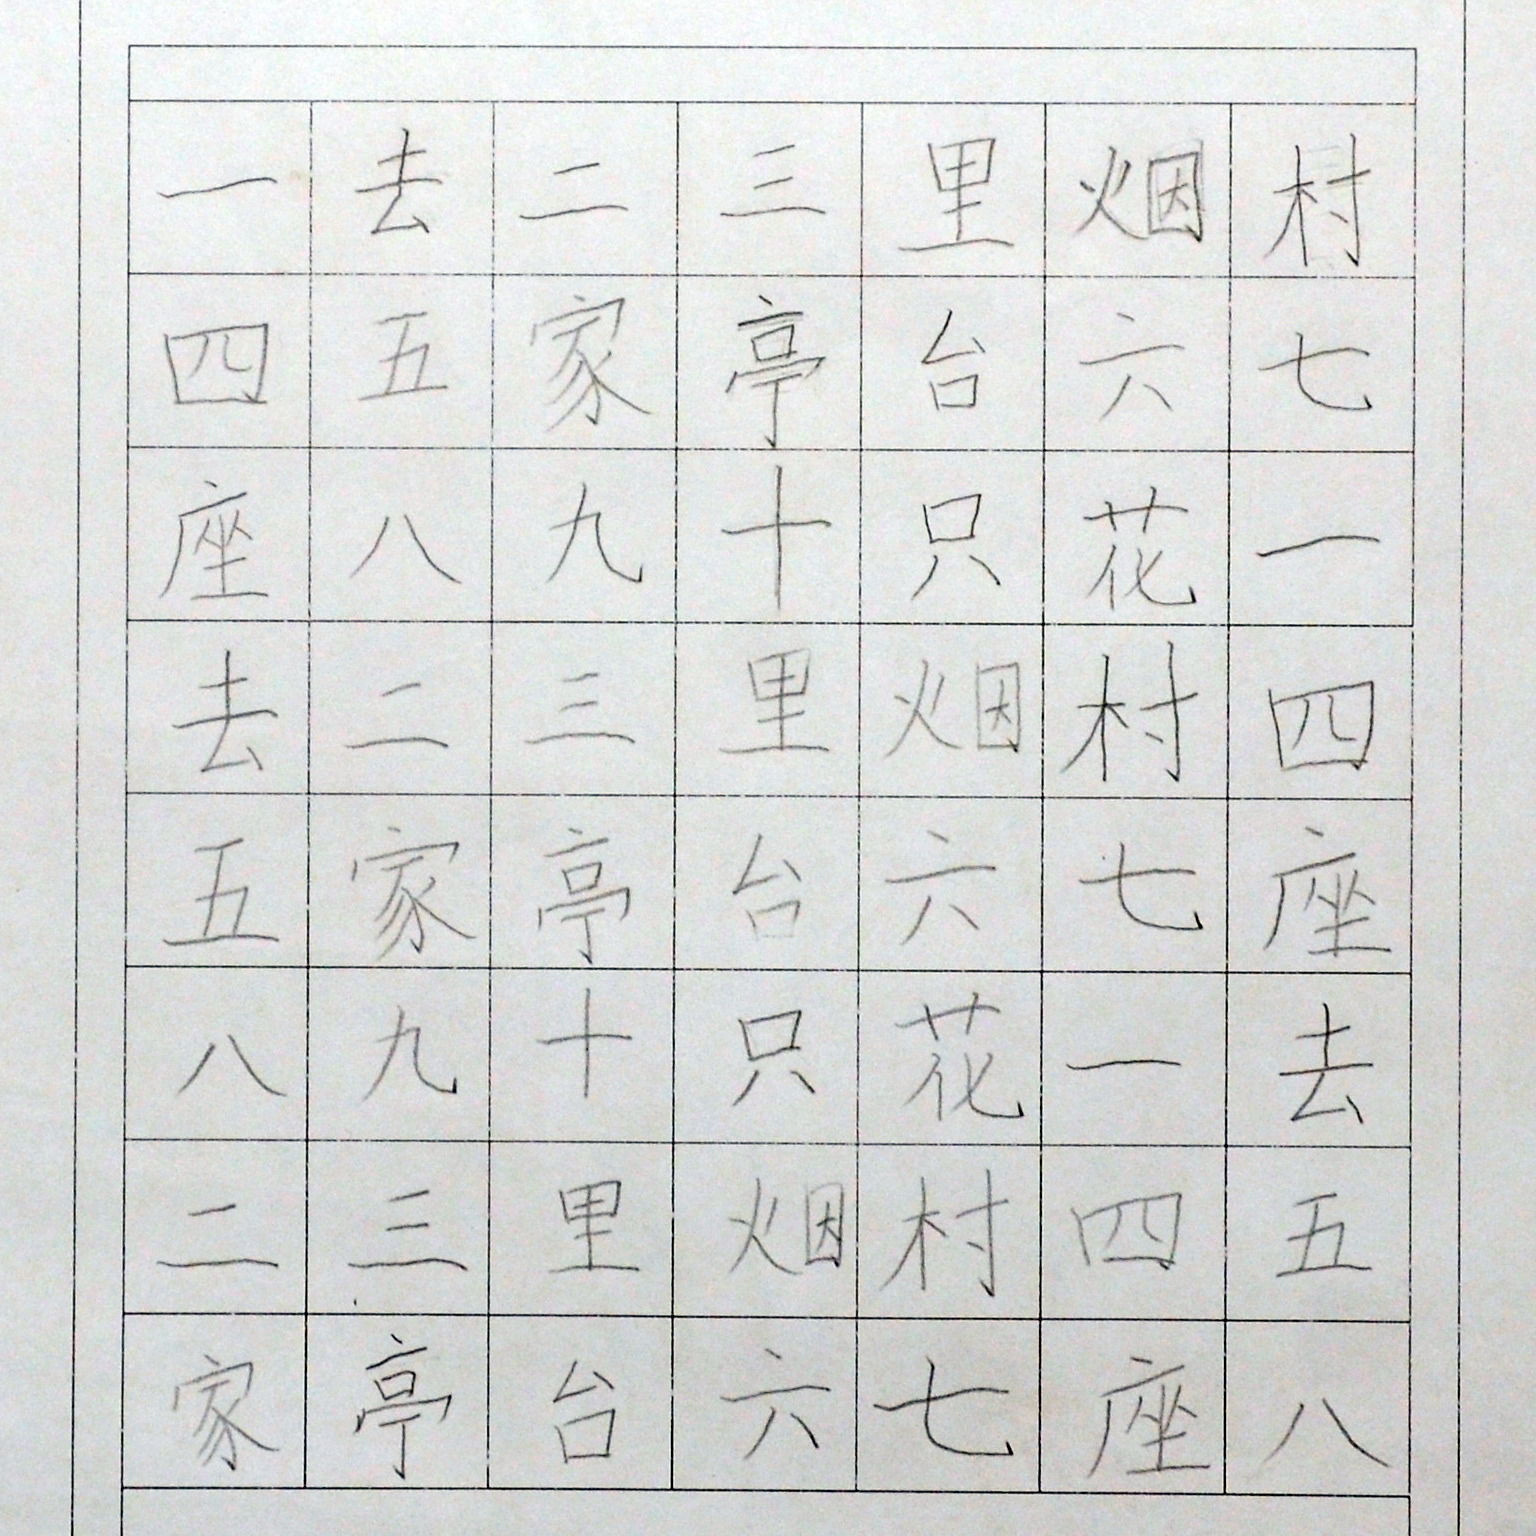 一去二三里烟村
四五家亭台六七
座八九十只花一
去二三里烟村四
五家亭台六七座
八九十只花一去
二三里烟村四五
家亭台六七座八